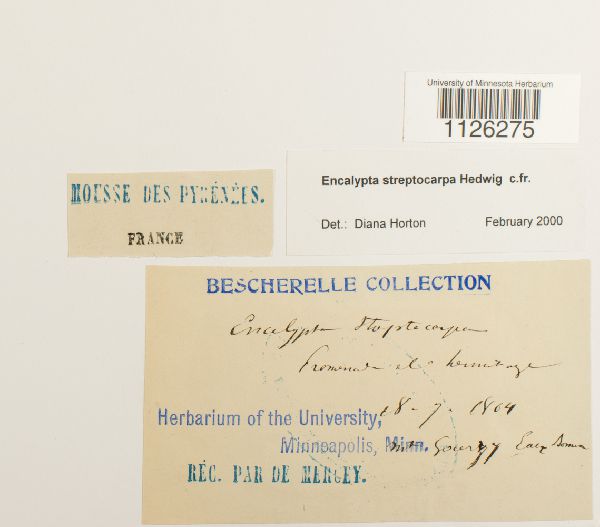 University of Minnesota Herbarium
1126275
Encalypta streptocarpa Hedwig c.fr.
Det.: Diana Horton February 2000
MOUSSE DES PYRÉNÉES.
FRANCE
BESCHERELLE COLLECTION
Encalypta streptocarpa
Promenade
hermitage
Herbarium of the University,
Minneapolis, Minn.
18-7-1864
Gourzy Eaux Bonnes
RÉC. PAR DE MERCEY.